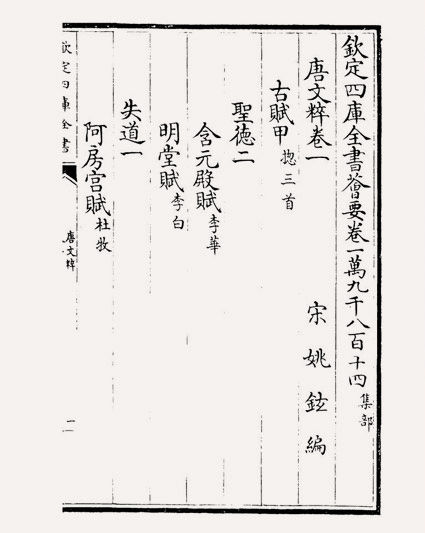 欽定四庫全書薈要卷一萬九千八百十四 集部
唐文粹卷一 宋 姚鉉 編
古賦甲 揔三首
聖徳二
含元殿賦 李華
明堂賦 李白
失道一
阿房宫賦 杜牧
欽定四庫全書 唐文粹 一